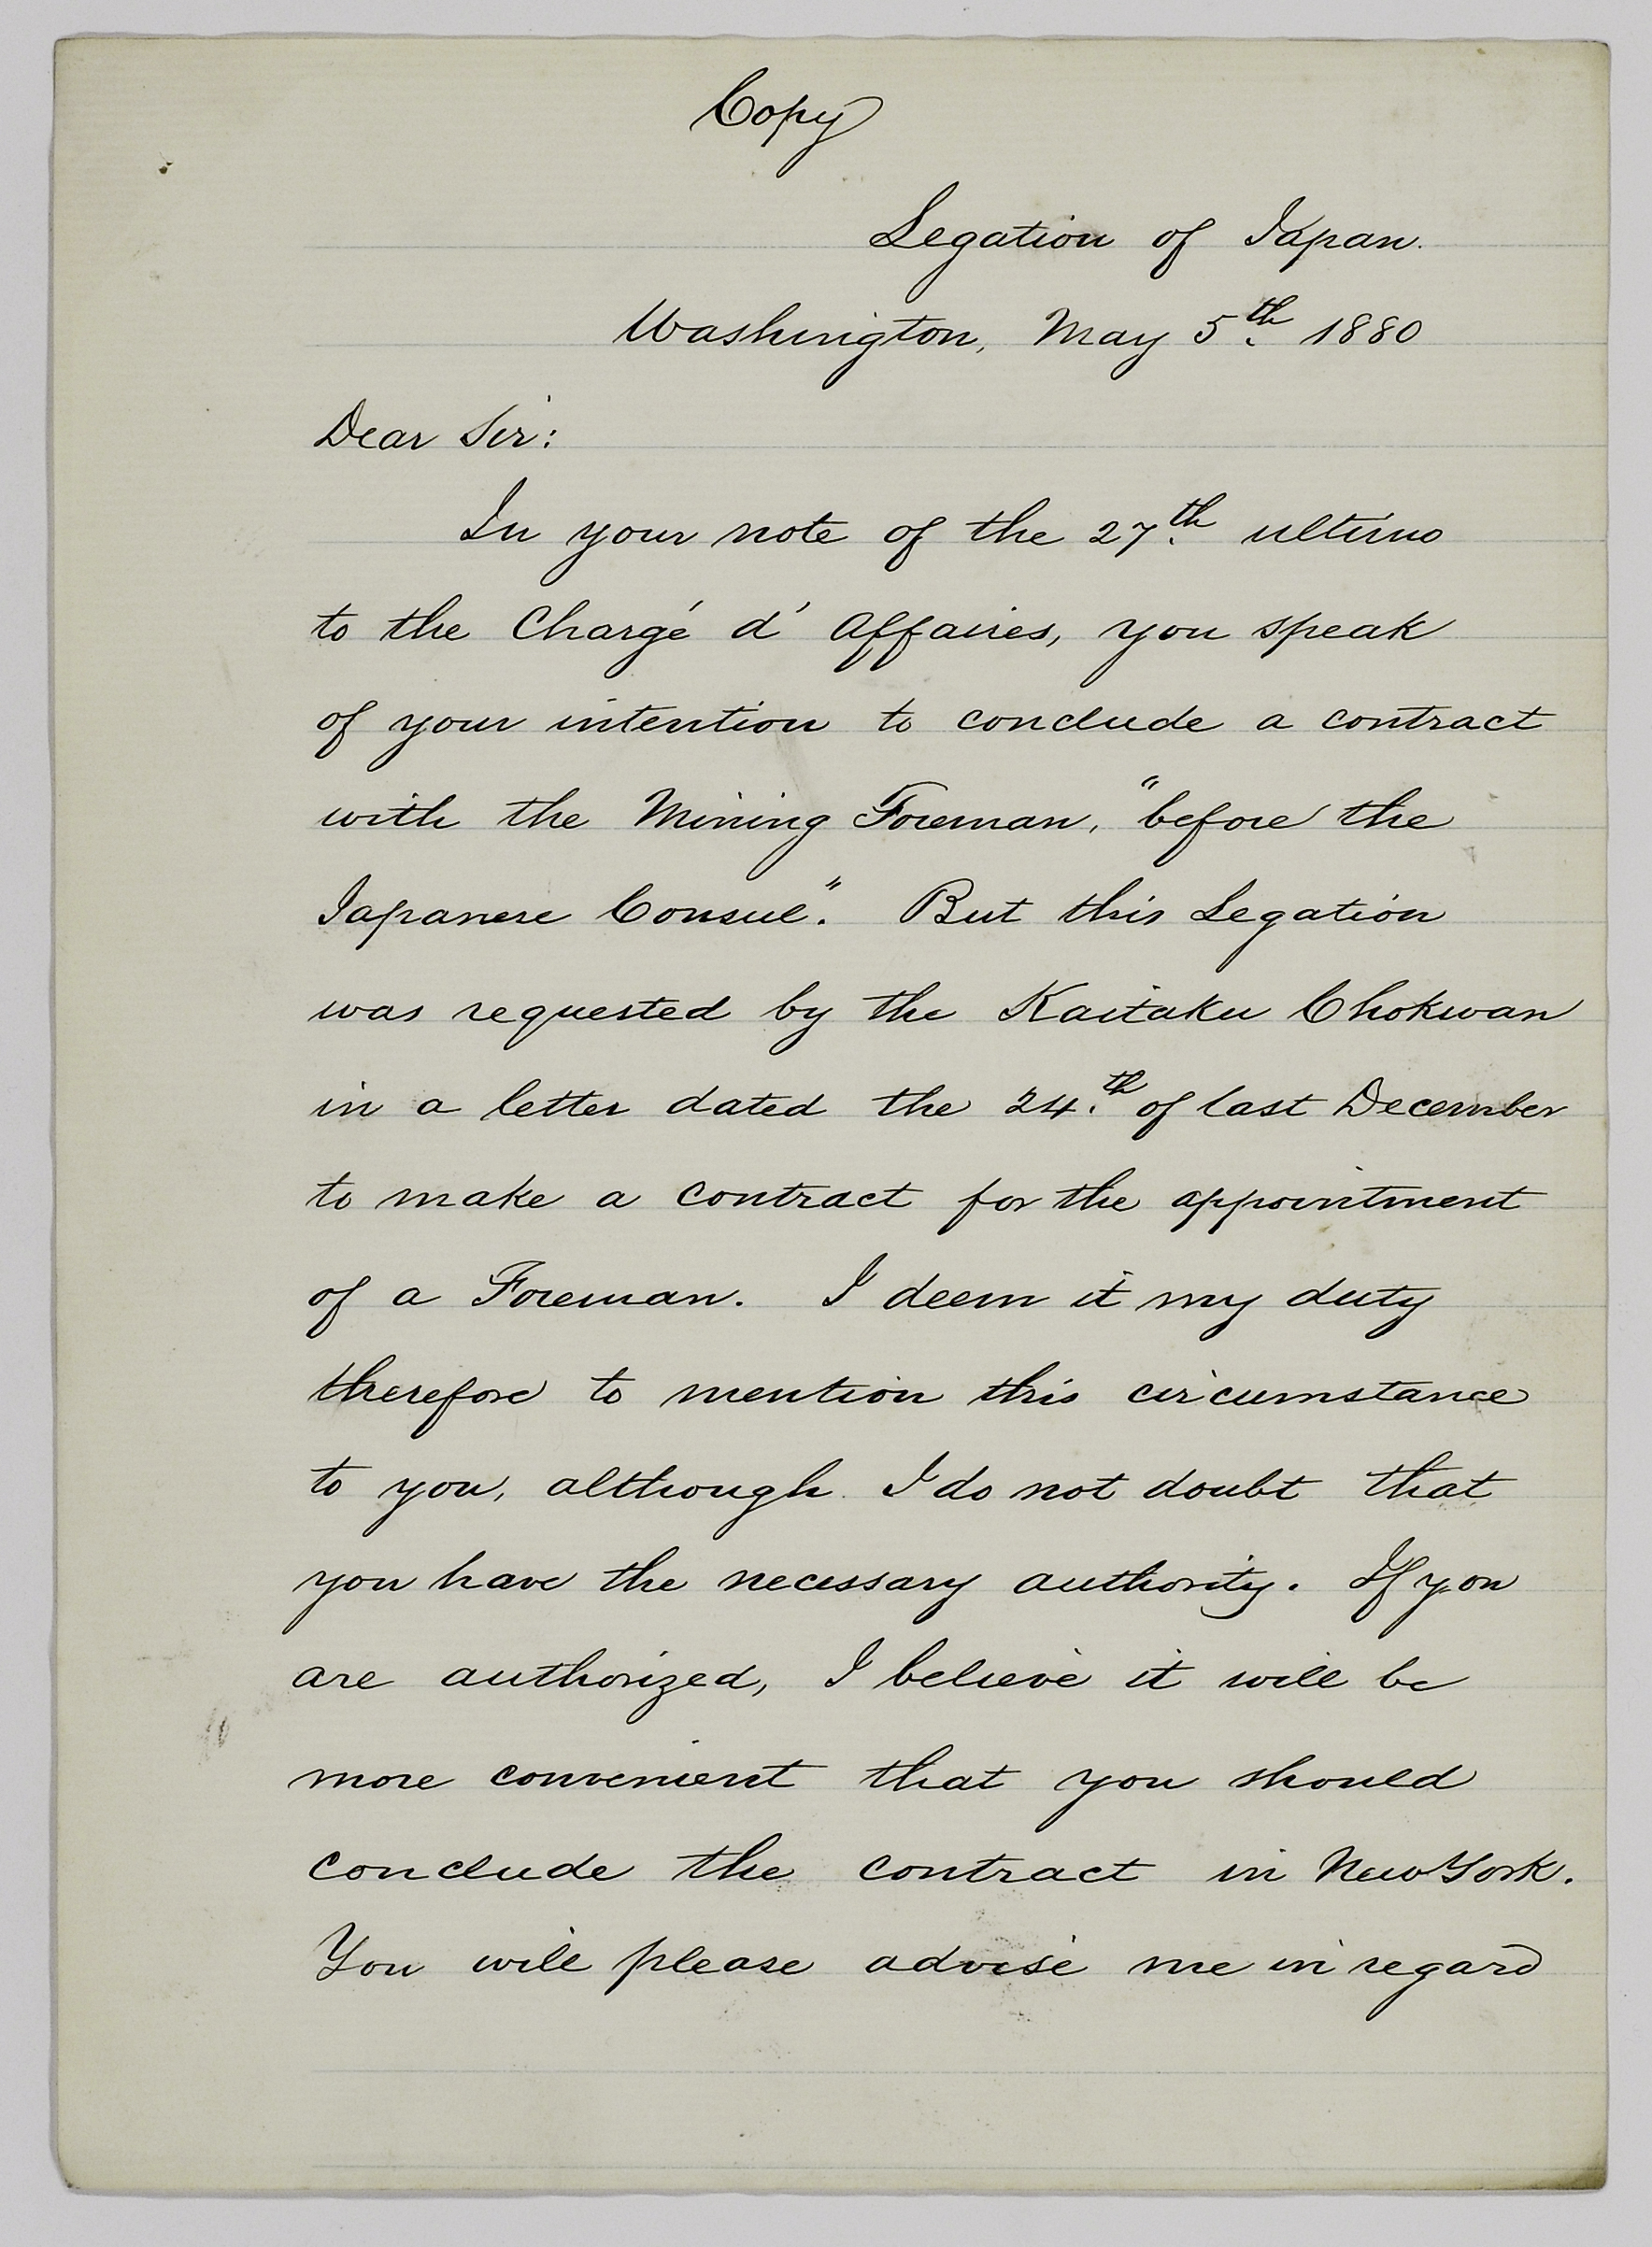 Copy
Legation of Japan.
Washington, May 5th. 1880
Dear Sir:
In your note of the 27th. ultimo
to the Chargé d' Affaires, you speak
of your intention to conclude a contract
with the Mining Foreman, "before the
Japanese Consul". But this Legation
was requested by the Kaitaku Chokwan
in a letter dated the 24th. of last December
to make a contract for the appointment
of a Foreman. I deem it my duty
therefore to mention this circumstance
to you, although I do not doubt that
you have the necessary authority. If you
are authorized, I believe it will be
more convenient that you should
conclude the contract in New York.
You will please advise me in regard